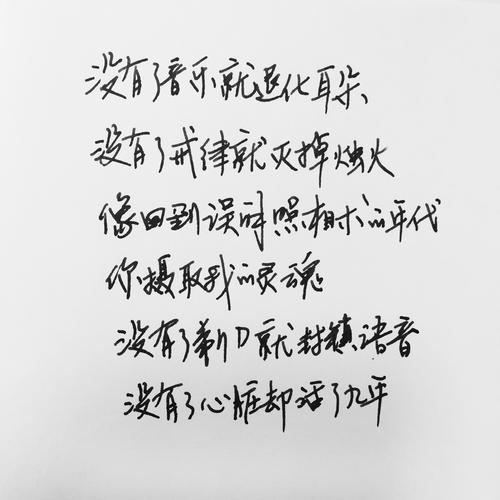 没有了音乐就退化耳朵
没有了戒律就灭掉烛火
像回到误解照相术的年代
你摄取我的灵魂
没有了就封镇语音
没有了心脏却活了九年